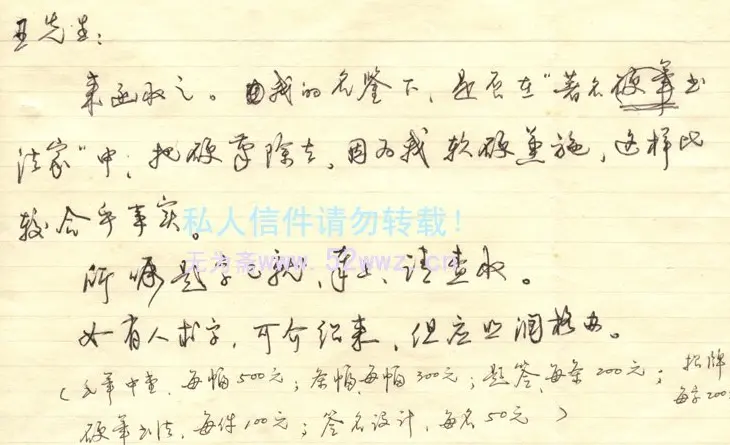 王先生：
来函收之。因我的名鉴下，是否在“著名硬笔书
法家”中，把硬笔除去，因为我软硬兼施，这样比
较合乎事实。
私人信件请勿转载！
无为斋www.52wwz.cn
所嘱题字已就，奉上，请查收。
如有人求字，可介绍来，但应照润格办。
（毛笔中堂，每幅500元；条幅，每幅300元；题签，每条200元；招牌每字200元
硬笔书法，每件100元；签名设计，每名50元）